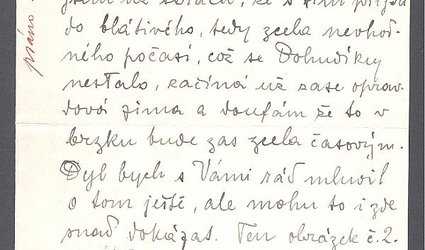 práno
že s tím přijdu
do blátivého, tedy zcela nevhod-
ného počasí, což se Bohudíky
nestalo, začíná už zase oprav-
dová zima a doufám že to v
brzku bude zas zcela časovým.
Dyť bych s Vámi rád mluvil
o tom ještě, ale mohu to i zde
snad dokázat. Ten obrázek č. 2.